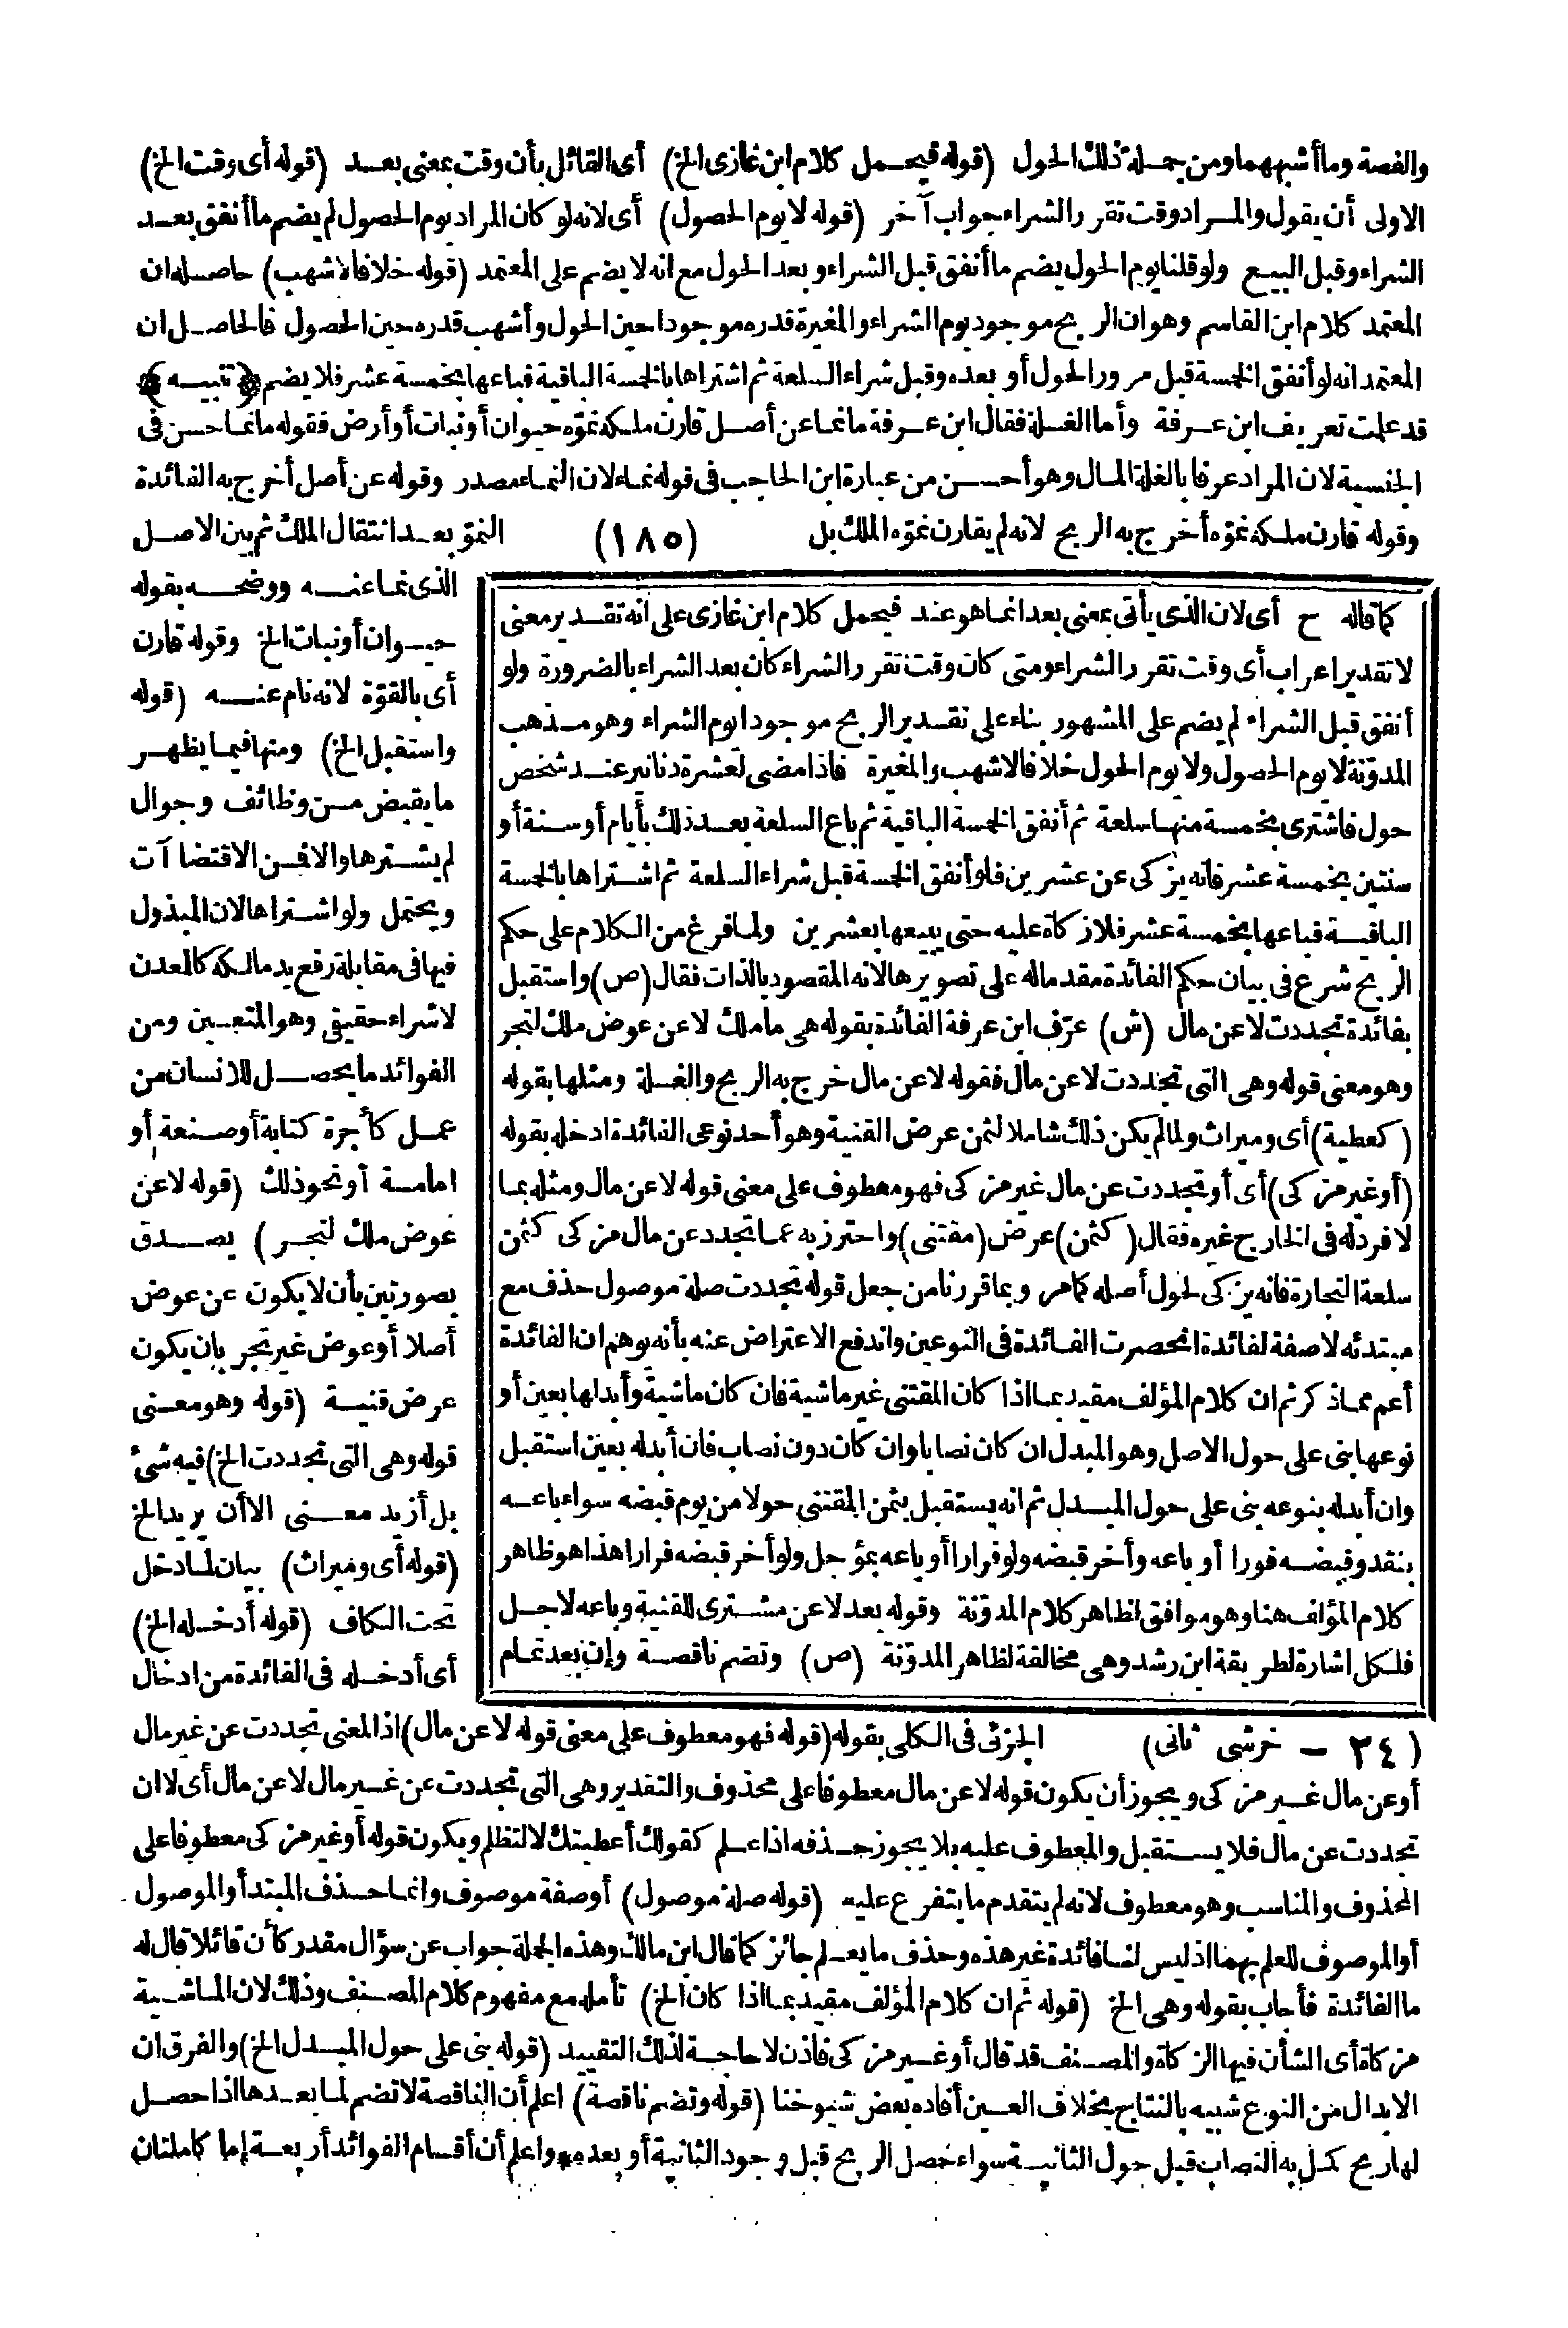 والفضة وما أشبههما ومن جملة ذلك الحول (قوله فيحمل كلام ابن غازى الخ) أى القائل بأن وقت بمعنى بعد (قوله أى وقت الخ)
الاولى أن يقول والمراد وقت تقرر الشراء جواب آخر (قوله لا يوم الحصول) أى لانه لو كان المراد يوم الحصول لم يضم ما أنفق بعد
الشراء وقبل البيع ولو قلنا يوم الحول يضم ما أنفق قبل الشراء وبعد الحول مع انه لا يضم على المعتمد (قوله خلافا لاشهب) حاصله ان
المعتمد كلام ابن القاسم وهو ان الربح موجود يوم الشراء والمغيرة قدره موجودا حين الحول وأشهب قدره حين الحصول فالحاصل ان
المعتمد انه لو أنفق الخمسة قبل مرور الحول أو بعده وقبل شراء السلعة ثم اشتراها بالخمسة الباقية فباعها بخمسة عشر فلا يضم ﴿تنبيه﴾
قد علمت تعريف ابن عرفة وأما الغلة فقال ابن عرفة ما نما عن أصل قارن ملكه نموّه حيوان أو نبات أو أرض فقوله ما نما حسن فى
الجنسية لان المراد عرفا بالغلة المال وهو أحسن من عبارة ابن الحاجب فى قوله نماء لان النماء مصدر وقوله عن أصل أخرج به الفائدة
وقوله قارن ملكه نموّه أخرج به الربح لانه لم يقارن نموّه الملك بل (١٨٥) النموّ بعد انتقال الملك ثم بين الاصل
الذى نما عنه ووضحه بقوله
حيوان أو نبات الخ وقوله قارن
أى بالقوّة لانه نام عنه (قوله
واستقبل الخ) ومنها فيما يظهر
ما يقبض من وظائف وجوال
لم يشترها والا فمن الاقتضا آت
ويحتمل ولو اشتراها لان المبذول
فيها فى مقابلة رفع يد مالكه كالمعدن
لا شراء حقيقى وهو المتعين ومن
الفوائد ما يحصل للانسان من
عمل كأجرة كتابة أو صنعة أو
امامة أو نحو ذلك (قوله لا عن
عوض ملك لتجر) يصدق
بصورتين بأن لا يكون عن عوض
أصلا أو عوض غير تجر بان يكون
عرض قنية (قوله وهو معنى
قوله وهى التى تجددت الخ) فيه شئ
بل أزيد معنى الا أن يريد الخ
(قوله أى وميراث) بيان لما دخل
تحت الكاف (قوله أدخله الخ)
أى أدخله فى الفائدة من ادخال
كما قاله ح أى لان الذى يأتى بمعنى بعد انما هو عند فيحمل كلام ابن غازى على انه تقدير معنى
لا تقدير اعراب أى وقت تقرر الشراء ومتى كان وقت تقرر الشراء كان بعد الشراء بالضرورة ولو
أنفق قبل الشراء لم يضم على المشهور بناء على تقدير الربح موجودا يوم الشراء وهو مذهب
المدوّنة لا يوم الحصول ولا يوم الحول خلافا لاشهب والمغيرة فاذا مضى لعشرة دنانير عند شخص
حول فاشترى بخمسة منها سلعة ثم أنفق الخمسة الباقية ثم باع السلعة بعد ذلك بأيام أو سنة أو
سنتين بخمسة عشر فانه يزكى عن عشرين فلو أنفق الخمسة قبل شراء السلعة ثم اشتراها بالخمسة
الباقية فباعها بخمسة عشر فلا زكاة عليه حتى يبيعها بعشرين ولما فرغ من الكلام على حكم
الربح شرع فى بيان حكم الفائدة مقدما له على تصويرها لانه المقصود بالذات فقال (ص) واستقبل
بفائدة تجددت لا عن مال (ش) عرّف ابن عرفة الفائدة بقوله هى ما ملك لا عن عوض ملك لتجر
وهو معنى قوله وهى التى تجددت لا عن مال فقوله لا عن مال خرج به الربح والغلة ومثلها بقوله
(كعطية) أى وميراث ولما لم يكن ذلك شاملا لثمن عرض القنية وهو أحد نوعى الفائدة ادخله بقوله
(أو غير مزكى) أى أو تجددت عن مال غير مزكى فهو معطوف على معنى قوله لا عن مال ومثله بما
لا فرد له فى الخارج غيره فقال (كثمن) عرض (مقتنى) واحترز به عما تجدد عن مال مزكى كثمن
سلعة التجارة فانه يزكى لحول أصله كما مر وبما قررنا من جعل قوله تجددت صلة موصول حذف مع
مبتدئه لا صفة لفائدة انحصرت الفائدة فى النوعين واندفع الاعتراض عنه بأنه يوهم ان الفائدة
أعم مما ذكر ثم ان كلام المؤلف مقيد بما اذا كان المقتنى غير ماشية فان كان ماشية وأبدلها بعين أو
نوعها بنى على حول الاصل وهو المبدل ان كان نصابا وان كان دون نصاب فان أبدله بعين استقبل
وان أبدله بنوعه بنى على حول المبدل ثم انه يستقبل بثمن المقتنى حولا من يوم قبضه سواء باعه
بنقد وقبضه فورا أو باعه وأخر قبضه ولو فرارا أو باعه بمؤجل ولو أخر قبضه فرارا هذا هو ظاهر
كلام المؤلف هنا وهو موافق لظاهر كلام المدوّنة وقوله بعد لا عن مشترى للقنية وباعه لاجل
فلكل اشارة لطريقة ابن رشد وهى مخالفة لظاهر المدوّنة (ص) وتضم ناقصة وإن بعد تمام
(٢٤ - خرشى ثانى) الجزئى فى الكلى بقوله (قوله فهو معطوف على معنى قوله لا عن مال) اذ المعنى تجددت عن غير مال
أو عن مال غير مزكى ويجوز أن يكون قوله لا عن مال معطوفا على محذوف والتقدير وهى التى تجددت عن غير مال لا عن مال أى لا ان
تجددت عن مال فلا يستقبل والمعطوف عليه بلا يجوز حذفه اذا علم كقولك أعطيتك لا لتظلم ويكون قوله أو غير مزكى معطوفا على
المحذوف والمناسب وهو معطوف لانه لم يتقدم ما يتفرع عليه (قوله صلة موصول) أو صفة موصوف وانما حذف المبتدأ والموصول
أو الموصوف للعلم بهما اذ ليس لنا فائدة غير هذه وحذف ما يعلم جائز كما قال ابن مالك وهذه الجملة جواب عن سؤال مقدر كأن قائلا قال له
ما الفائدة فأجاب بقوله وهى الخ (قوله ثم ان كلام المؤلف مقيد بما اذا كان الخ) تأمله مع مفهوم كلام المصنف وذلك لان الماشية
مزكاة أى الشأن فيها الزكاة والمصنف قد قال أو غير مزكى فاذن لا حاجة لذلك التقييد (قوله بنى على حول المبدل الخ) والفرق ان
الابدال من النوع شبيه بالنتاج بخلاف العين أفاده بعض شيوخنا (قوله وتضم ناقصة) اعلم أن الناقصة لا تضم لما بعدها اذا حصل
لها ربح كمل به النصاب قبل حول الثانية سواء حصل الربح قبل وجود الثانية أو بعده * واعلم أن أقسام الفوائد أربعة إما كاملتان